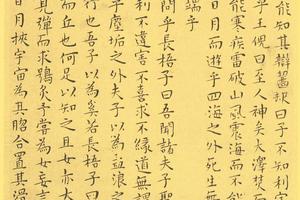 能知其辯齧缺曰子不知利害
乎王倪曰至人神矣大澤焚而
能寒疾雷破山風震海而不能
日月而遊乎四海之外死生無
端乎
問乎長梧子曰吾聞諸夫子聖
利不違害不喜求不緣道無謂
乎塵垢之外夫子以為孟浪之
行也吾子以為奚若長梧子曰
而丘也何足以知之且女亦大
見彈而求鴞炙予嘗為女妄言
日月挾宇宙為其脗合置其滑